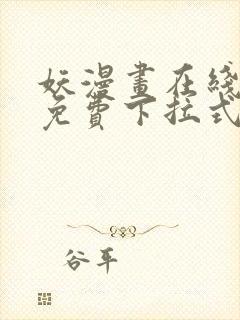 妖漫畫在綫
免費下拉式
谷平